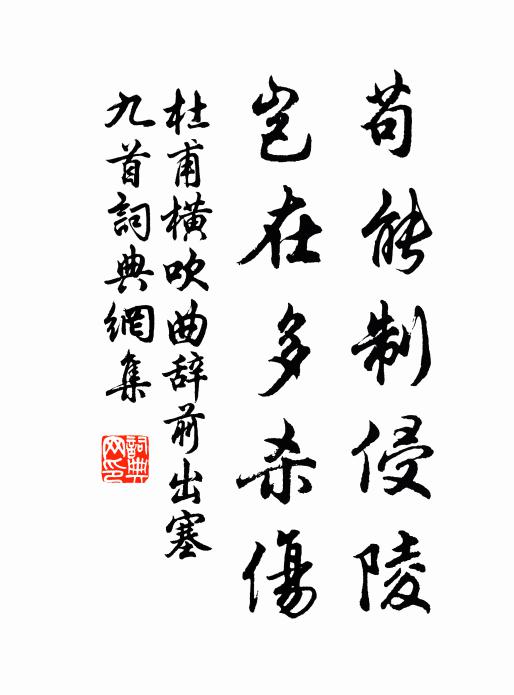 苟能制侵陵
岂在多杀傷
杜甫橫吹曲辞前出塞
九首詞典網集
詞典网印